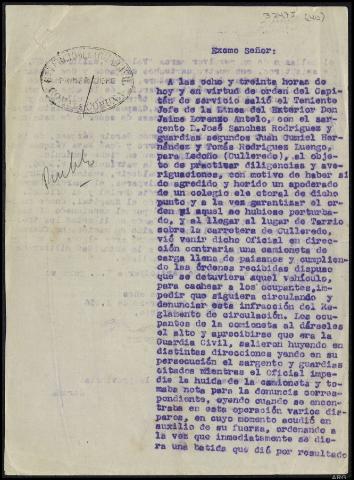 32475 (40)
Excmo Señor:
A las ocho y treinta horas de
hoy y en virtud de orden del Capi-
tán de servicio salió el Teniente
Jefe de la Linea del Exterior Don
Jaime Lorenzo Antelo, con el sar-
gento D.José Sanchez Rodriguez y
guardias segundos Juan Curiel Her-
nández y Tomás Rodriguez Luengo,
para Ledoño (Culleredo), al obje-
to de practicar diligencias y ave-
riguaciones, con motivo de haber si
do agredido y herido un apoderado
de un colegio electoral de dicho
punto y a la vez garantizar el or-
den si aquel se hubiese perturba-
do, y al llegar al lugar de Tarrio
sobre la carretera de Culleredo,
vió venir dicho Oficial en direc-
ción contraria una camioneta de
carga llena de paisanos y cumplien-
do las órdenes recibidas dispuso
que se detuviera aquel vehículo,
para cachear a los ocupantes, im-
pedir que siguiera circulando y
denunciar esta infracción del Re-
glamento de circulación. Los ocu-
pantes de la camioneta al dárseles
el alto y apercibirse que era la
Guardia Civil, salieron huyendo en
distintas direcciones yendo en su
persecución el sargento y guardias
citados mientras el Oficial impe-
dia la huida de la camioneta y to-
maba nota para la denuncia corres-
pondiente, oyendo cuando se encon-
traba en esta operación varios dis-
paros, en cuyo momento acudió en
auxilio de su fuerza, ordenando a
la vez que inmediatamente se die-
ra una batida que dió por resultado